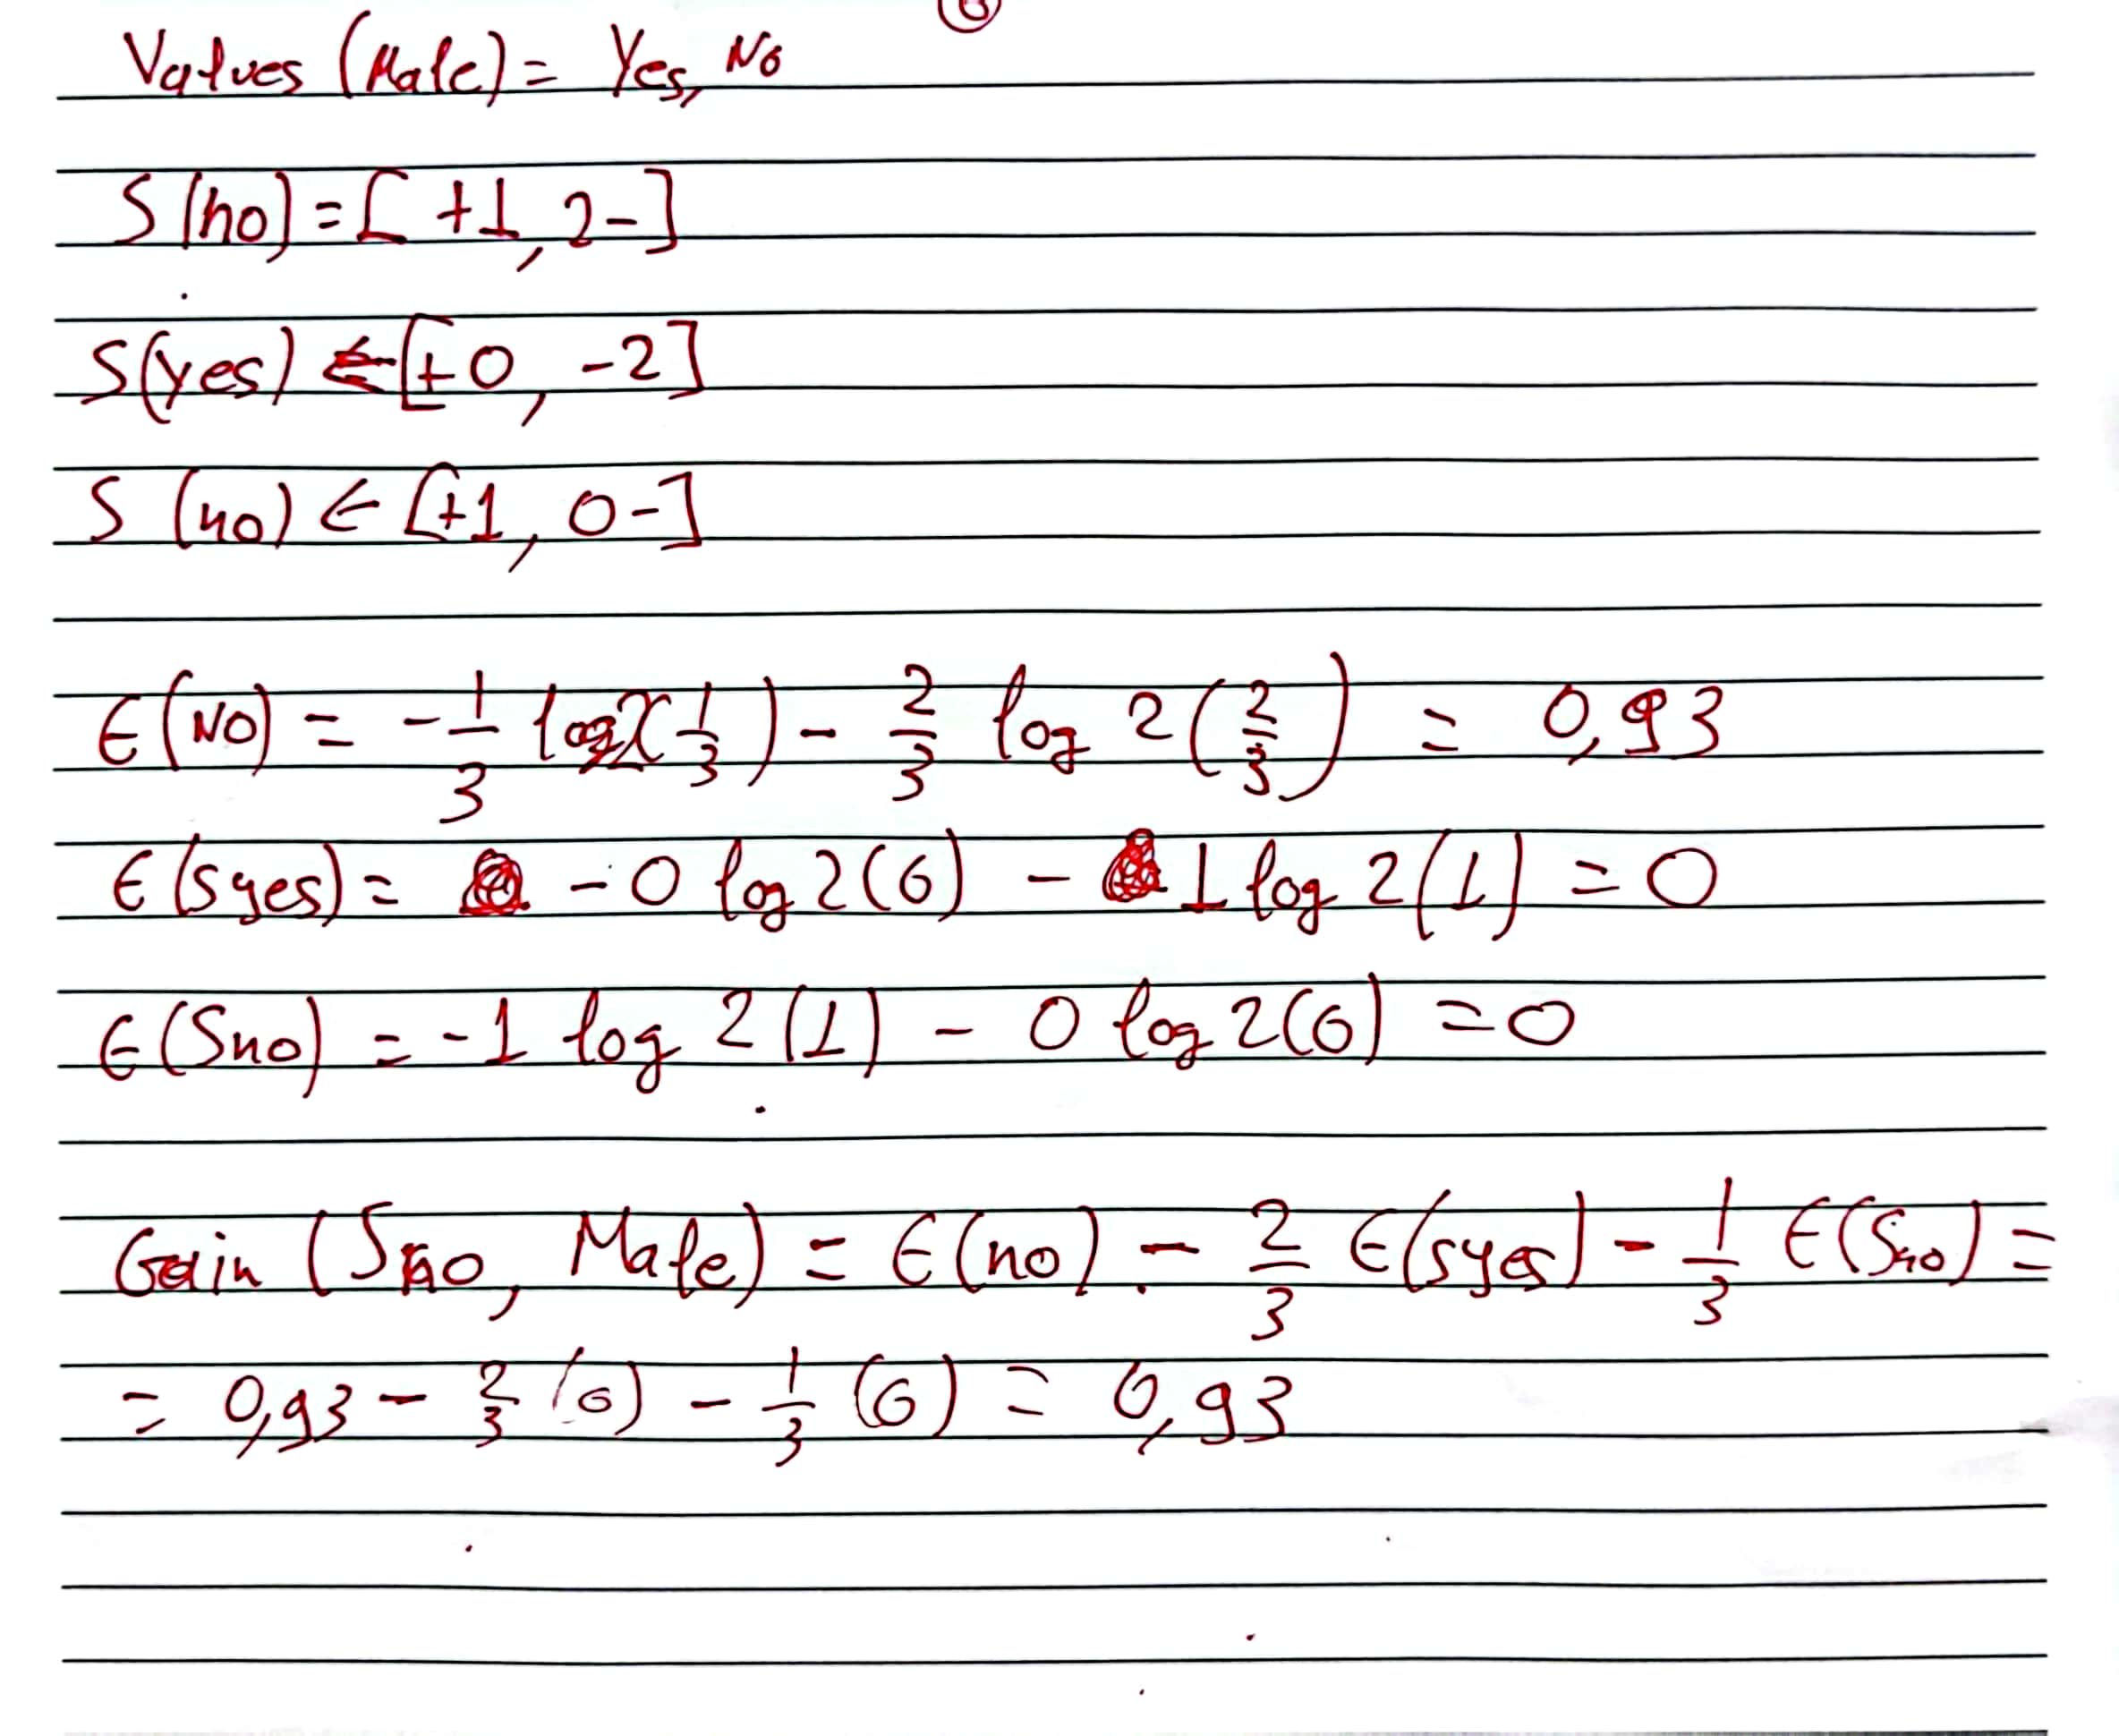 6
Values (Male) = Yes, No
S(no) = [+1, 2-]
S(yes) ← [+0, -2]
S(no) ← [+1, 0-]
E(NO) = -1/3 log2(1/3) - 2/3 log2(2/3) = 0,93
E(Syes) = -0 log2(0) - 1 log2(1) = 0
E(Sno) = -1 log2(1) - 0 log2(0) = 0
Gain (Sno, Male) = E(no) - 2/3 E(syes) - 1/3 E(Sno) =
= 0,93 - 2/3 (0) - 1/3 (0) = 0,93